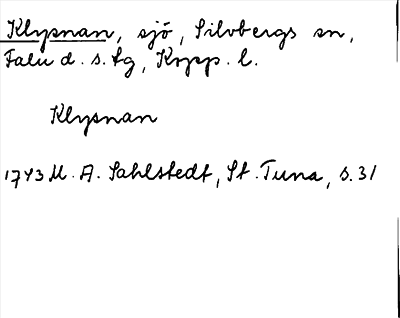 Klysnan, sjö, Silvbergs sn,
Falu d. s. lg, Kopp. l.
Klysnan
1743 M. A. Sahlstedt, St. Tuna, s. 31